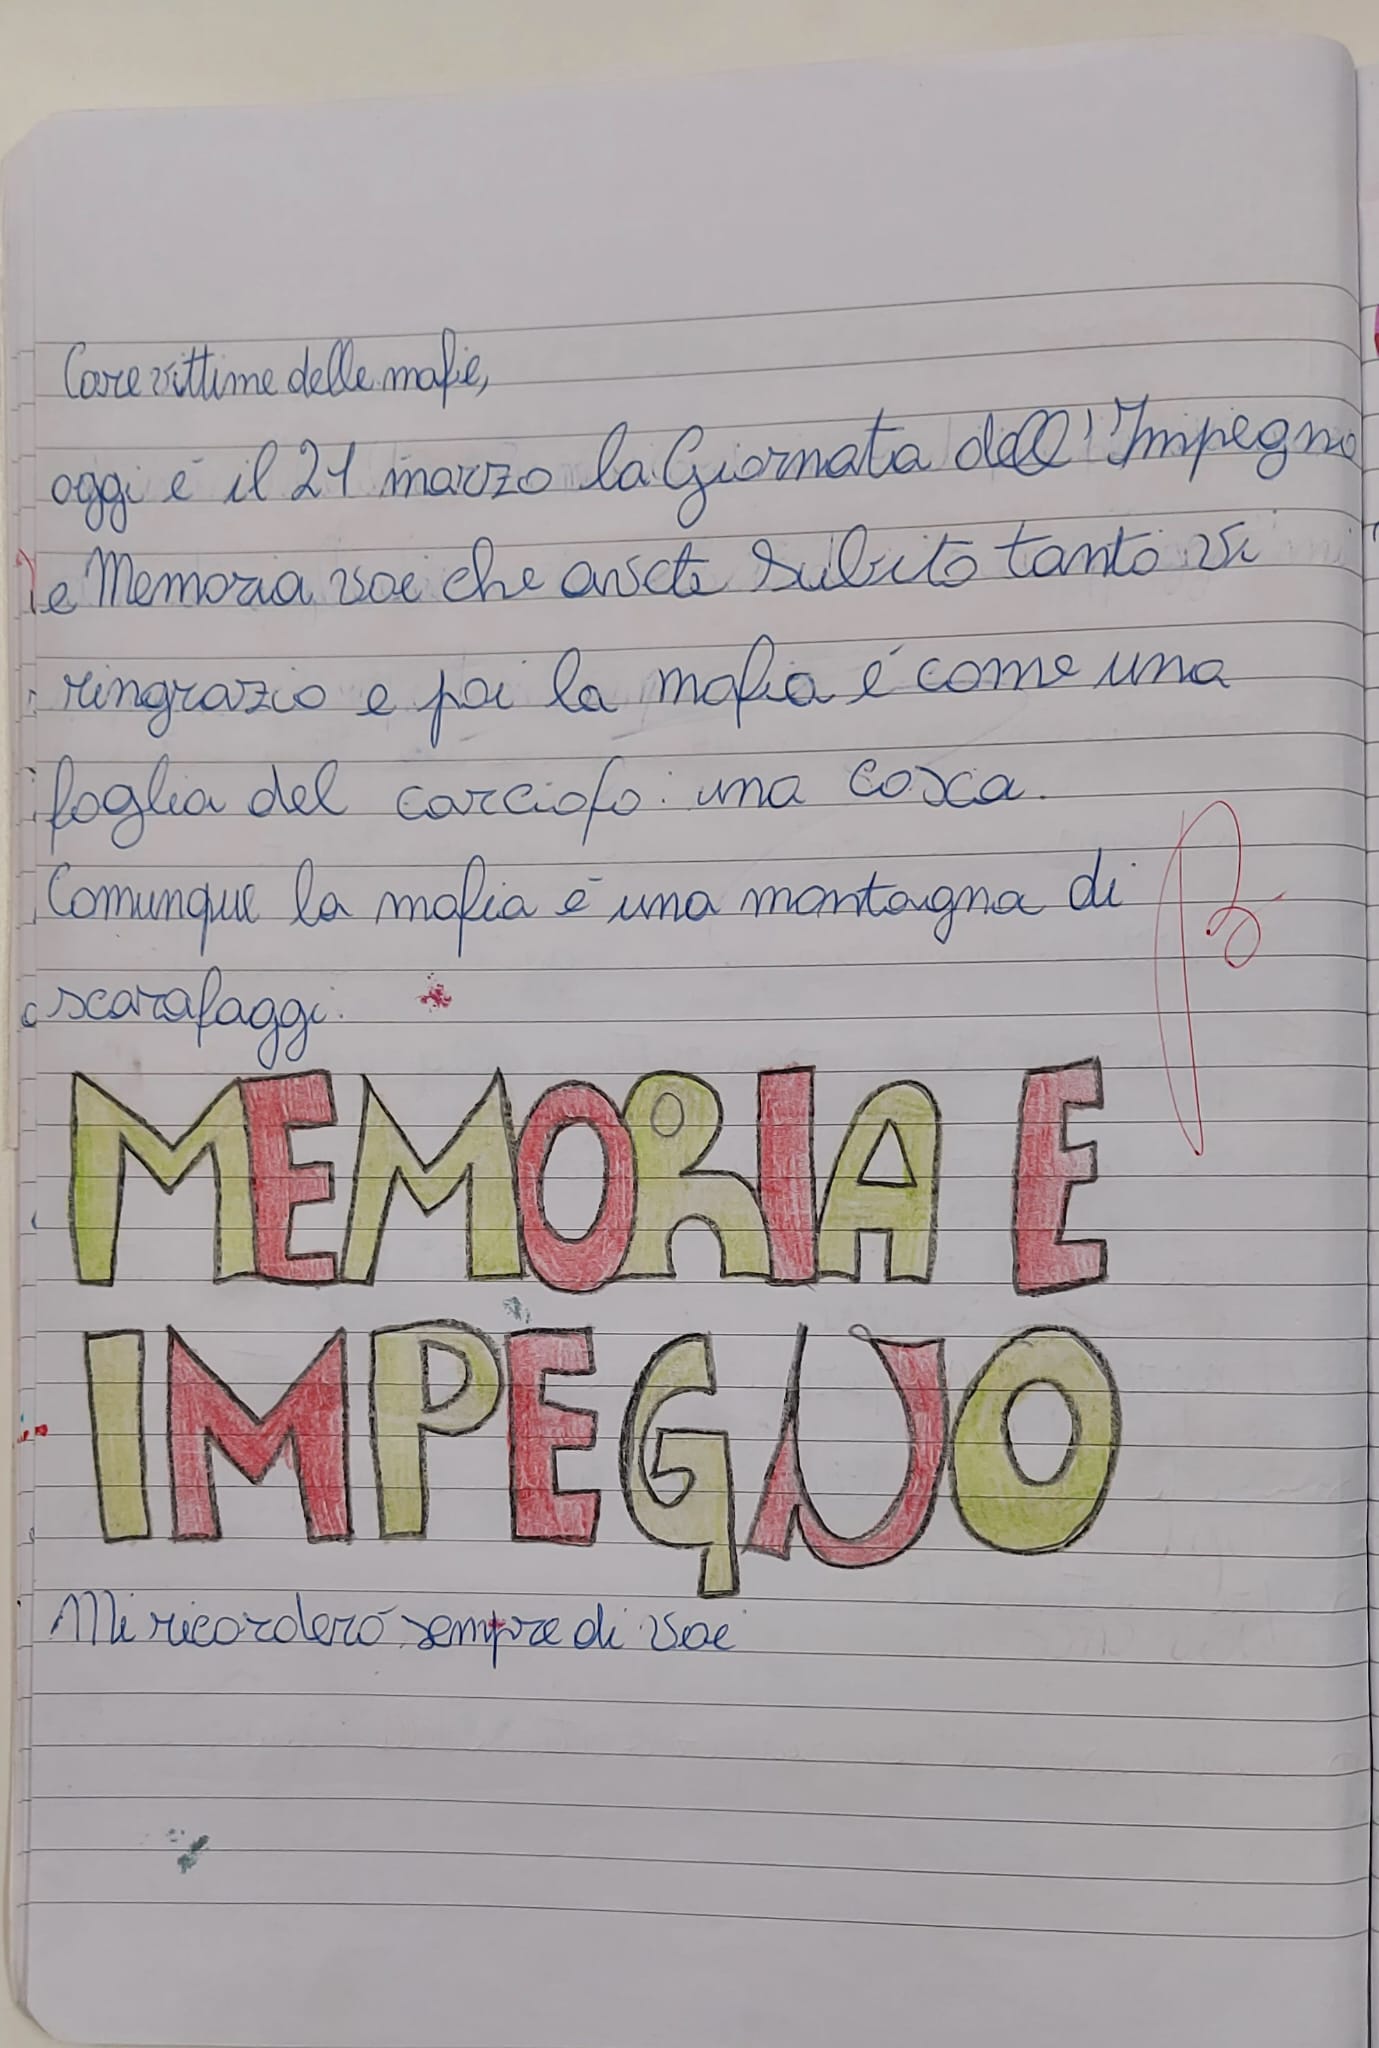 Care vittime delle mafie,
oggi è il 21 marzo la Giornata dell'Impegno
e Memoria voi che avete subito tanto vi
ringrazio e poi la mafia è come una
foglia del carciofo: una cosca.
Comunque la mafia è una montagna di
scarafaggi.
MEMORIA E
IMPEGNO
Mi ricorderò sempre di voi